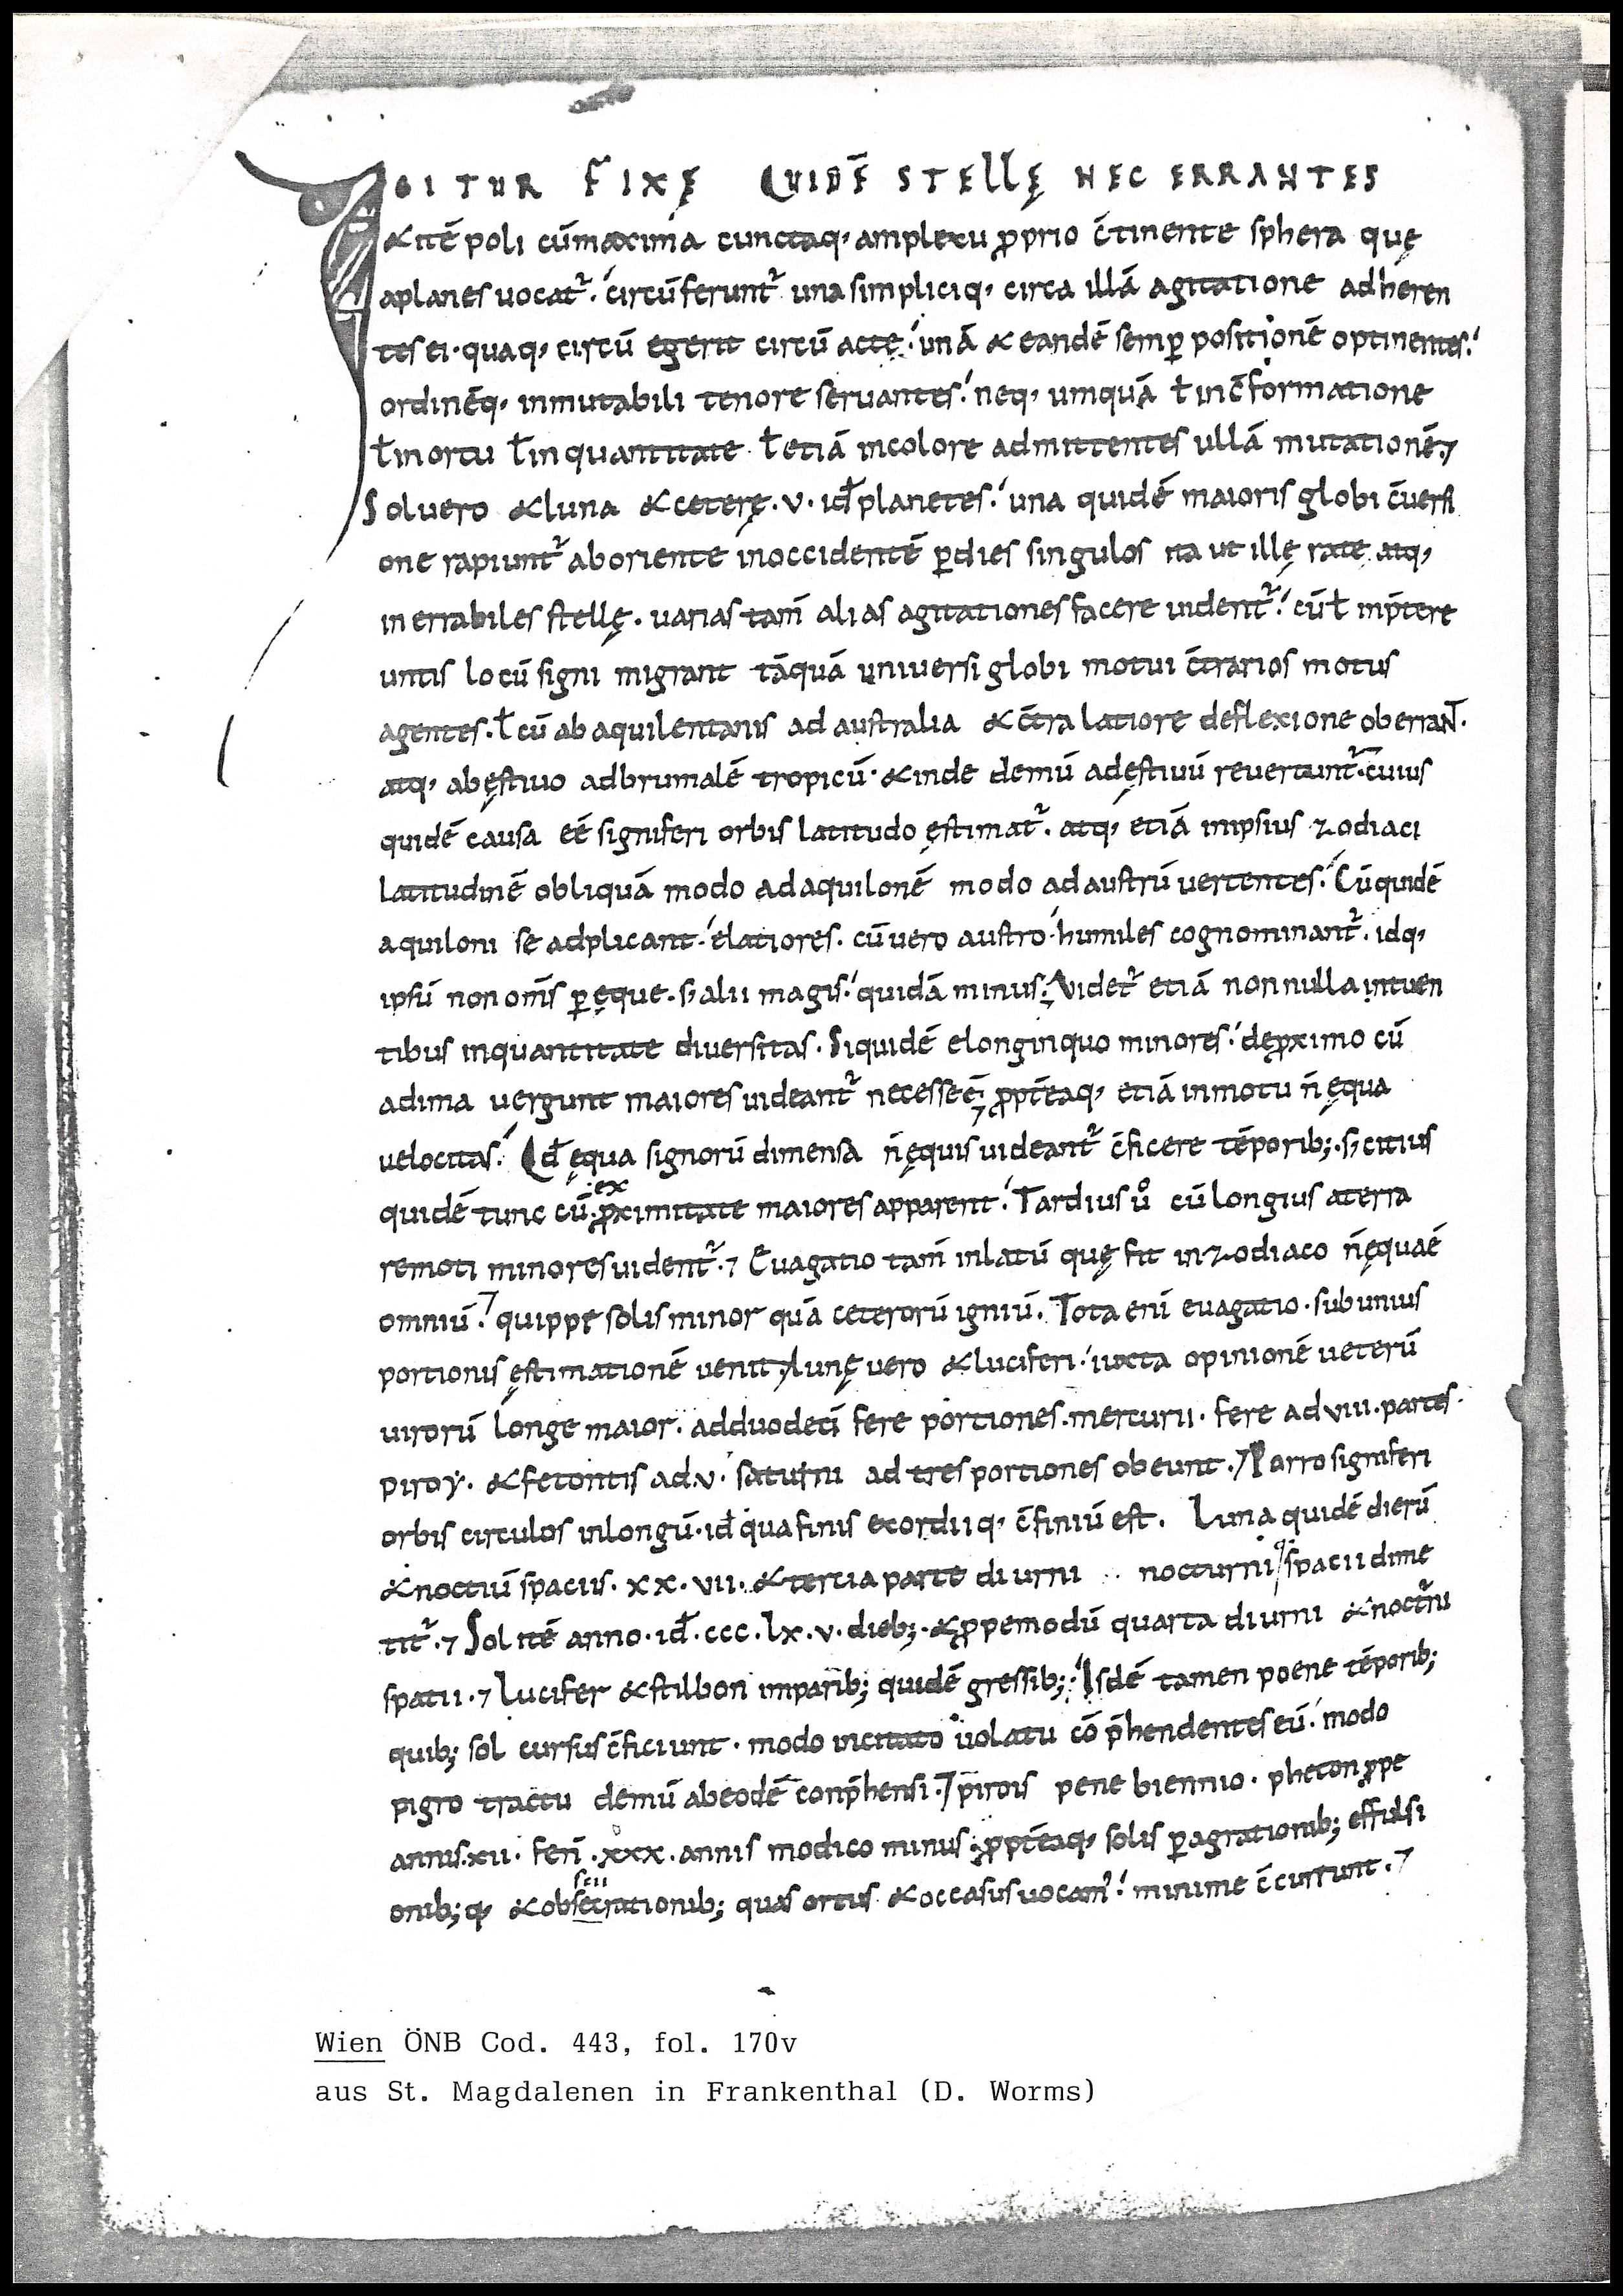 IGITUR FIXĘ QUIDĒ STELLĘ NEC ERRANTES
& itē poli cū maxima cunctaq; amplexu ꝓprio c̄tinente sphera quę
aplanes uocat᷑. circūferunt᷑ una simpliciq; circa illā agitatione adheren
tes ei. quaq; circū egerit circū actę. unā & eandē semꝑ positionē optinentes.
ordinēq; inmutabili tenore seruantes. neq; umquā ł in c̄formatione
ł in ortu ł in quantitate ł etiā in colore admittentes ullā mutationē.
Sol uero & luna & ceterę .v. id planetes. una quidē maioris globi c̄uersi
one rapiunt᷑ ab oriente in occidentē ꝑ dies singulos ita ut illę ratę atq;
inerrabiles stellę. uarias tam̄ alias agitationes facere uident᷑. cū ł inp̄tere
untis locū signi migrant tāquā uniuersi globi motui c̄trarios motus
agentes. ł cū ab aquilentanis ad australia & c̄tra latiore deflexione oberraN̄.
atq; ab ęstiuo ad brumalē tropicū. & inde demū ad ęstiuū reuertunt᷑. cuius
quidē causa eē signiferi orbis latitudo ęstimat᷑. atq; etiā in ipsius zodiaci
latitudinē obliquā modo ad aquilonē modo ad austrū uertentes. Cū quidē
aquiloni se adplicant. elatiores. cū uero austro. humiles cognominant᷑. idq;
ipsū non om̄s ꝑ ęque. s; alii magis. quidā minus. Videt᷑ etiā non nulla intuen
tibus in quantitate diuersitas. Siquidē e longinquo minores. de ꝓximo cū
ad ima uergunt maiores uideant᷑ necesse ē; ꝓpt̄eaq; etiā in motu n̄ ęqua
uelocitas. Qd̄ ęqua signorū dimensa n̄ ęquis uideant᷑ c̄ficere tēporib;. s; citius
quidē tunc cū ex ꝓximitate maiores apparent. Tardius u̇ cū longius a terra
remoti minores uident᷑. Euagatio tam̄ in latū quę fit in zodiaco n̄ ęqua ē
omniū. quippe solis minor quā ceterorū igniū. Tota enī euagatio. sub unius
portionis ęstimationē uenit. lunę uero & luciferi. iuxta opinionē ueterū
uirorū longe maior. ad duodecī fere portiones. mercurii. fere ad viii. partes.
piroẏ. & fetontis ad .v. saturni ad tres portiones obeunt. Porro signiferi
orbis circulos in longū. id qua finis exordiiq; c̄finiū est. Luna quidē dierū
& noctiū spaciis. xx.vii. & tercia parte diurni nocturniq; spacii dime
tit᷑. Sol itē anno. id. ccc.lx.v. dieb;. & ꝓpemodū quarta diurni & noct᷑ni
spatii. Lucifer & stilbon imparib; quidē gressib;. Isdē tamen poene tēporib;
quib; sol cursus c̄ficiunt. modo incitato uolatu cō p̄hendentes eū. modo
pigro tractu demū ab eodē conp̄hensi. pirois pene biennio. pheton ꝓpe
annis. xii. fen̄. xxx. annis modico minus. ꝓpt̄eaq; solis ꝑagrationib; effulsi
onib;q; & obsecrationib; quas ortus & occasus uocam᷑. minime c̄currunt.
Wien ÖNB Cod. 443, fol. 170v
aus St. Magdalenen in Frankenthal (D. Worms)